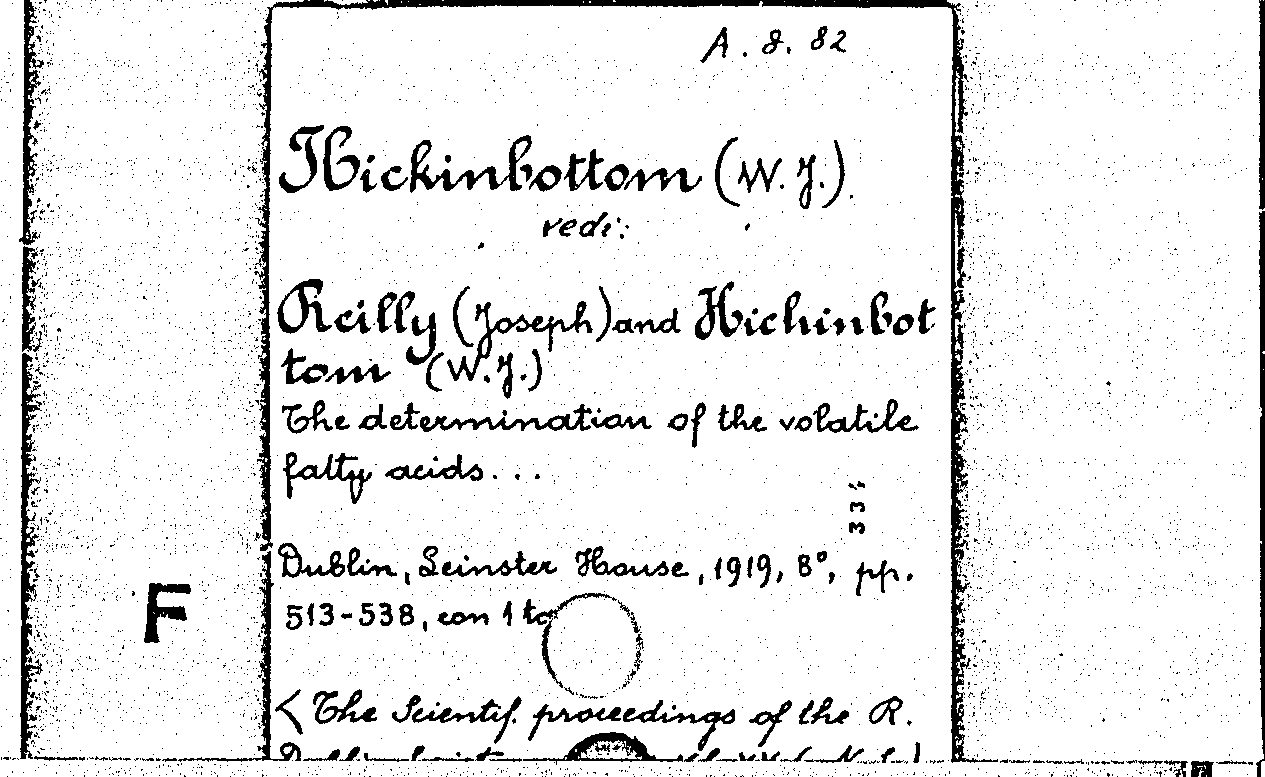 A. 8. 82
Hickinbottom (W. J.)
vedi:
Reilly (Joseph) and Hickinbot
tom (W. J.)
The determination of the volatile
fatty acids...
334
Dublin, Leinster House, 1919, 8°, pp.
513-538, con 1
F
< The Scientif. proceedings of the R.